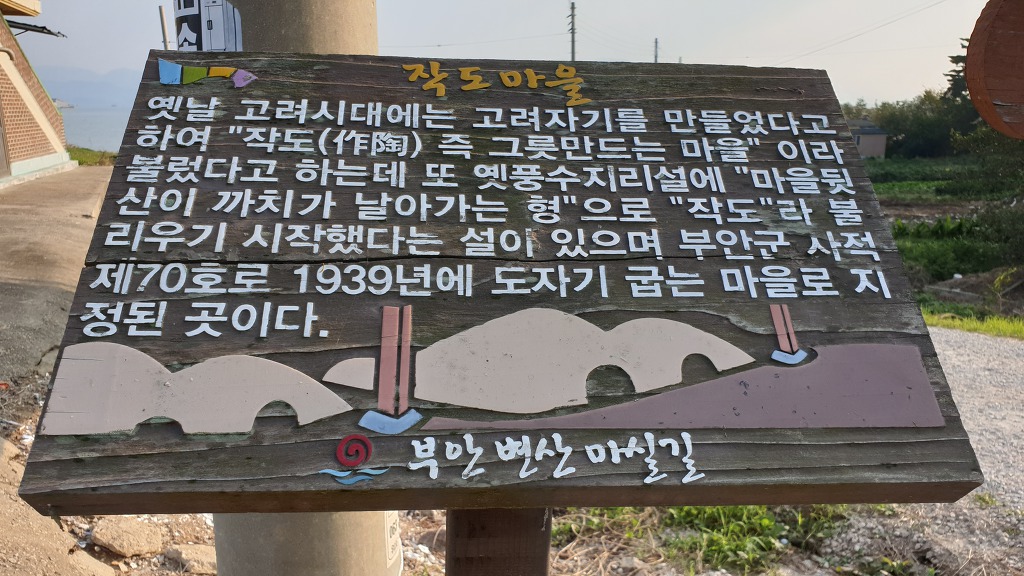 작도마을
옛날 고려시대에는 고려자기를 만들었다고
하여 "작도(作陶) 즉 그릇만드는 마을" 이라
불렀다고 하는데 또 옛풍수지리설에 "마을뒷
산이 까치가 날아가는 형"으로 "작도"라 불
리우기 시작했다는 설이 있으며 부안군 사적
제70호로 1939년에 도자기 굽는 마을로 지
정된 곳이다.
부안 변산 마실길